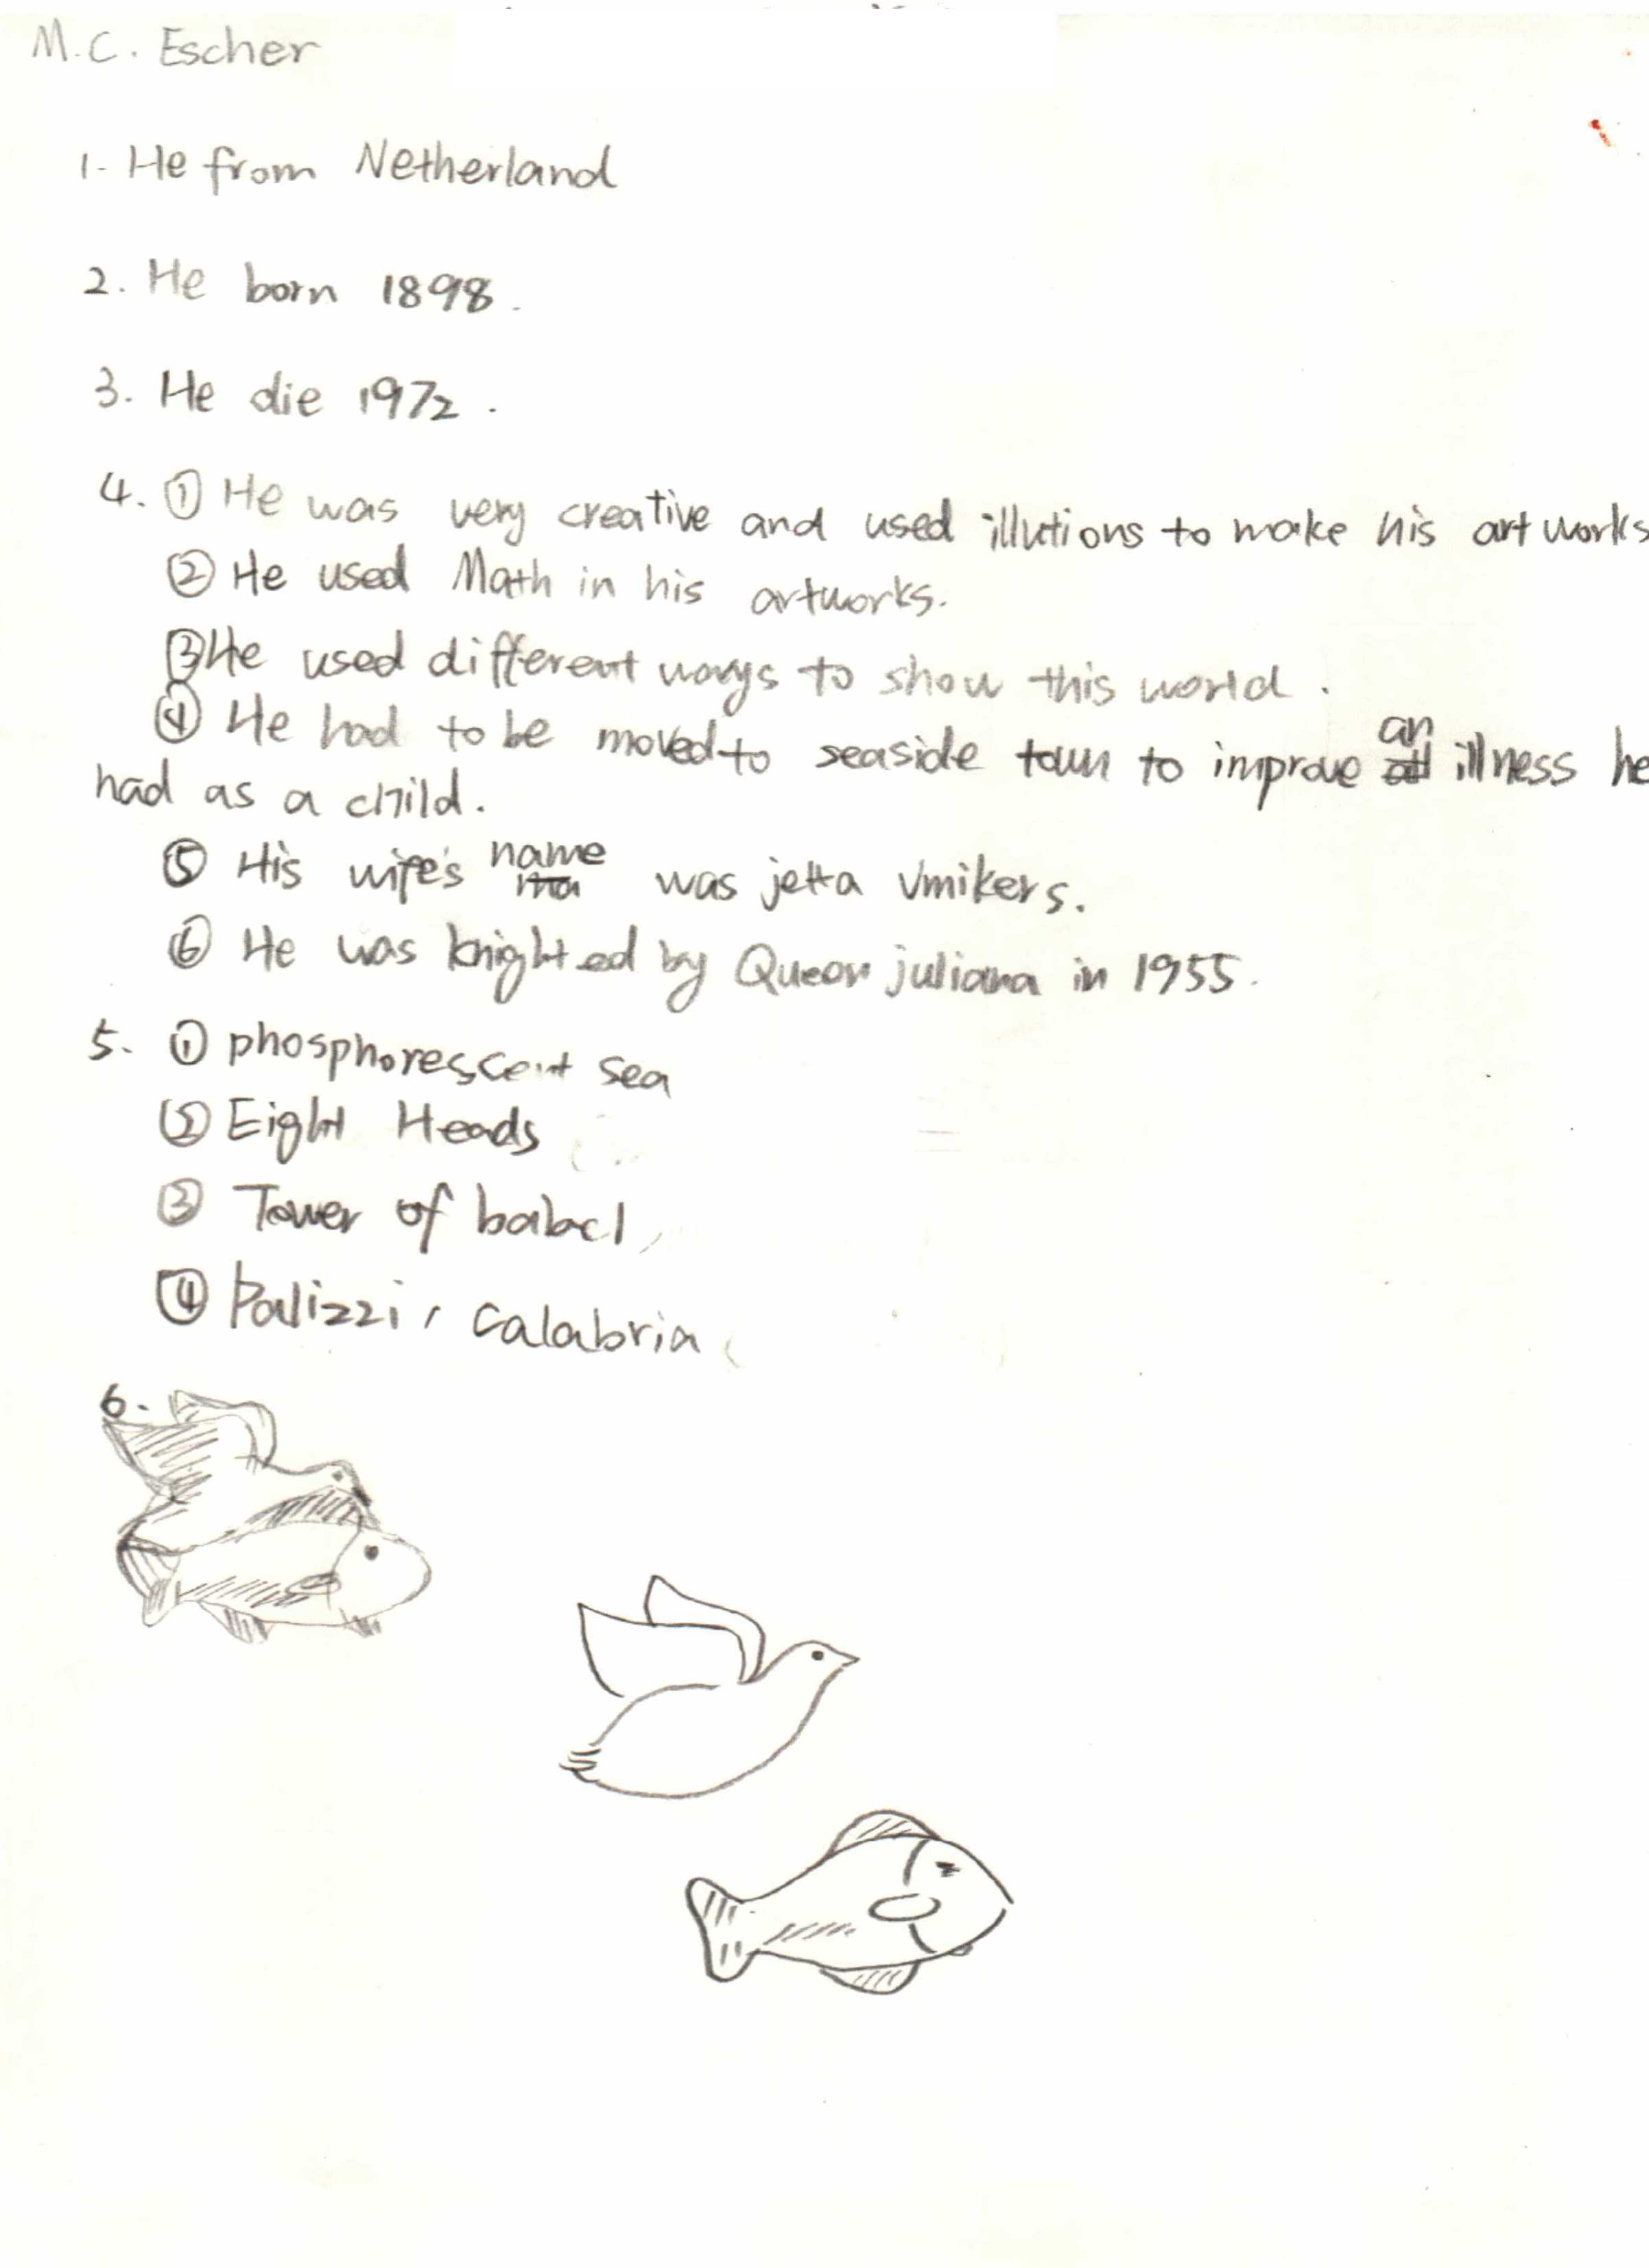 M.C. Escher
1. He from Netherland
2. He born 1898.
3. He die 1972.
4. ① He was very creative and used illutions to make his artworks
② He used Math in his artworks.
③ He used different ways to show this world.
④ He had to be moved to seaside town to improve an illness he
had as a child.
⑤ His wife's name was jetta Vmikers.
⑥ He was knighted by Queen juliana in 1955.
5. ① phosphorescent sea
② Eight Heads
③ Tower of babel
④ Palizzi, Calabria
6.